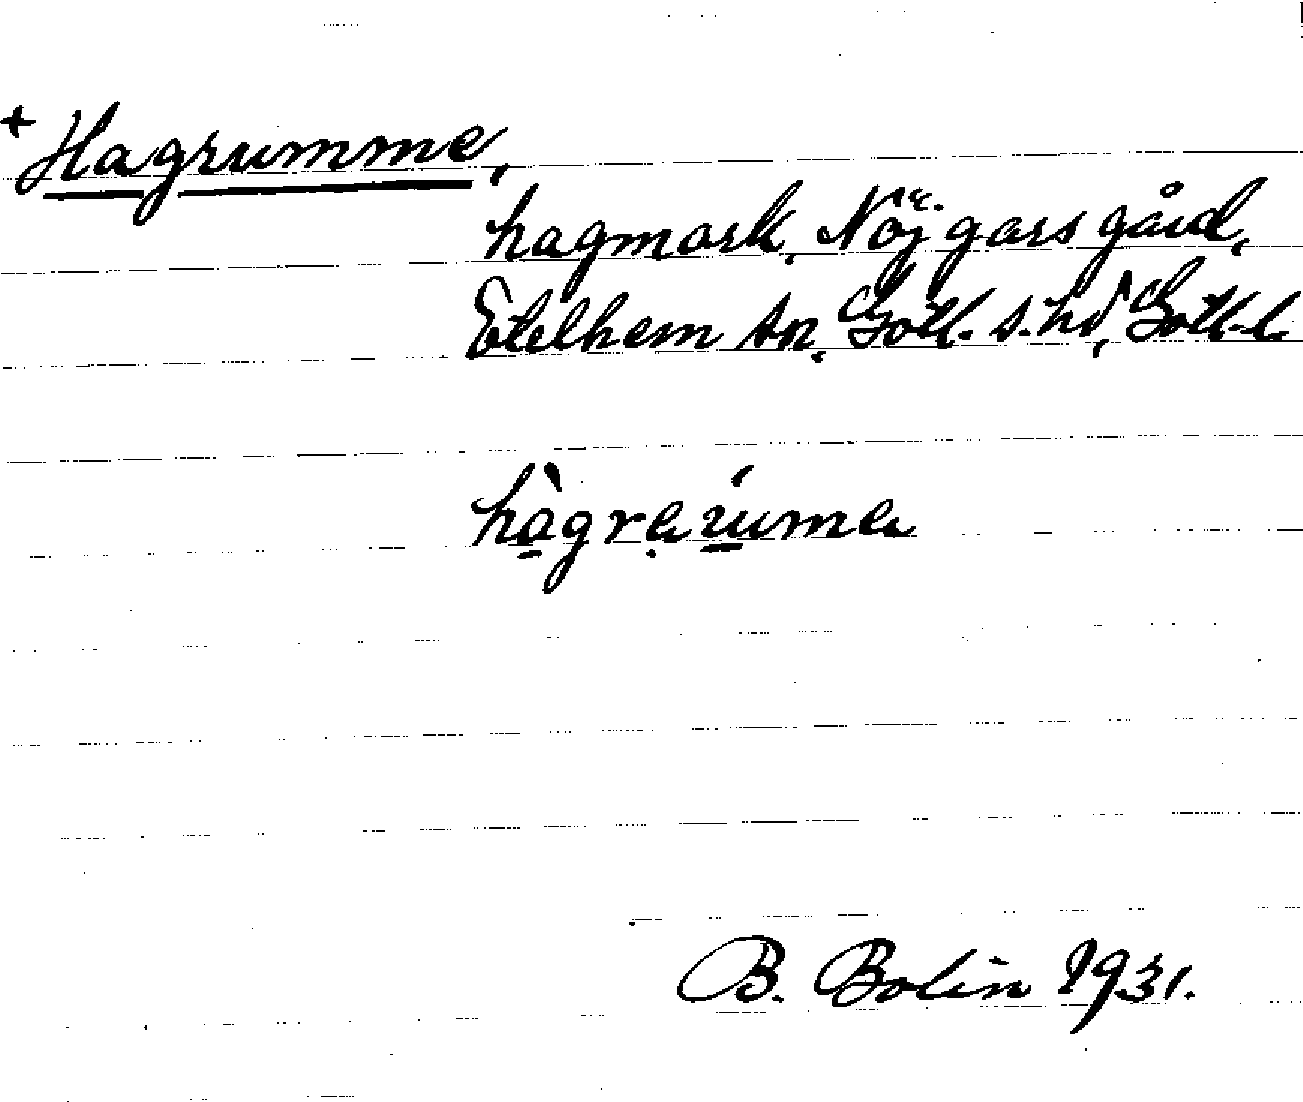 + Hagrumme,
hagmark, Nöjgars gård,
Etelhem sn, Gotl. s. hd, Gotl. l.
hàgrẹúma
B. Bolin 1931.